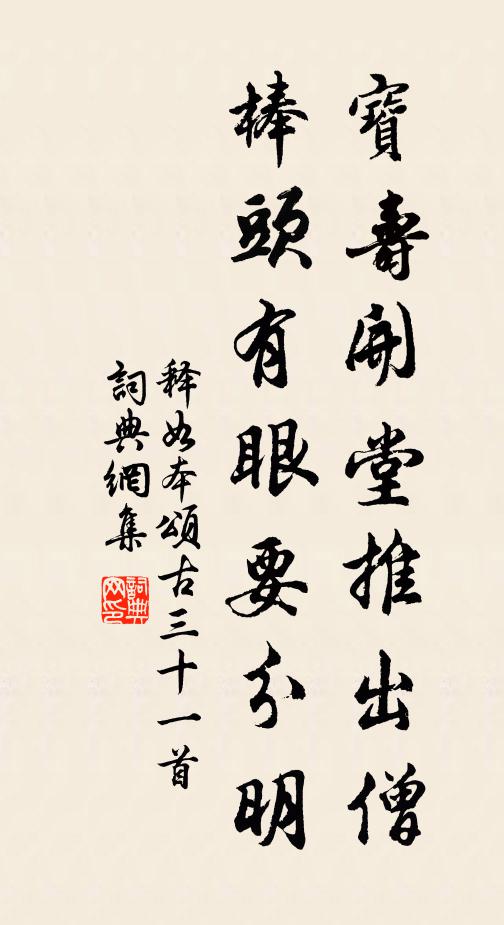 寶壽開堂推出僧
棒頭有眼要分明
释如本頌古三十一首
詞典網集
詞典網印